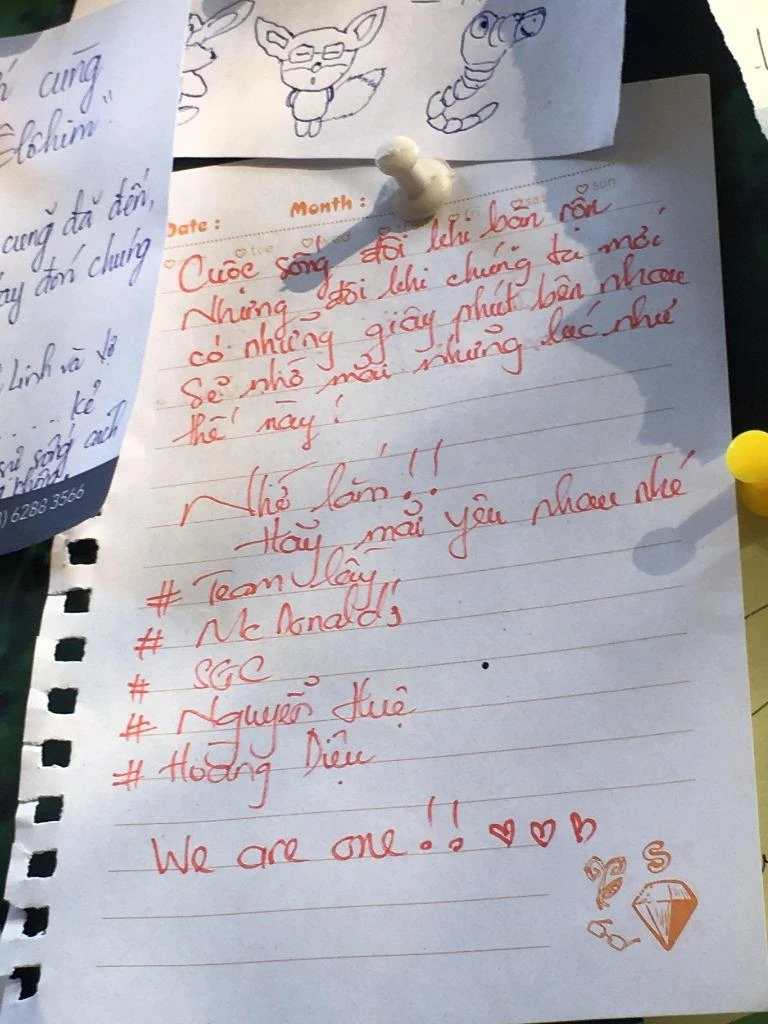 cùng
Elôhim"
cùng đã đến,
đón chúng
Linh và
kẻ
sống cách
) 6288 3566
Date :
Month :
sat
sun
Cuộc sống đôi khi bận rộn
Nhưng đôi khi chúng ta mới
có những giây phút bên nhau
Sẽ nhớ mãi những lúc như
thế này!
Nhớ lắm!!
Hãy mãi yêu nhau nhé
# Team lầy
# Mc Donald's
# SGC
# Nguyễn Huệ
# Hoàng Diệu
We are one!!